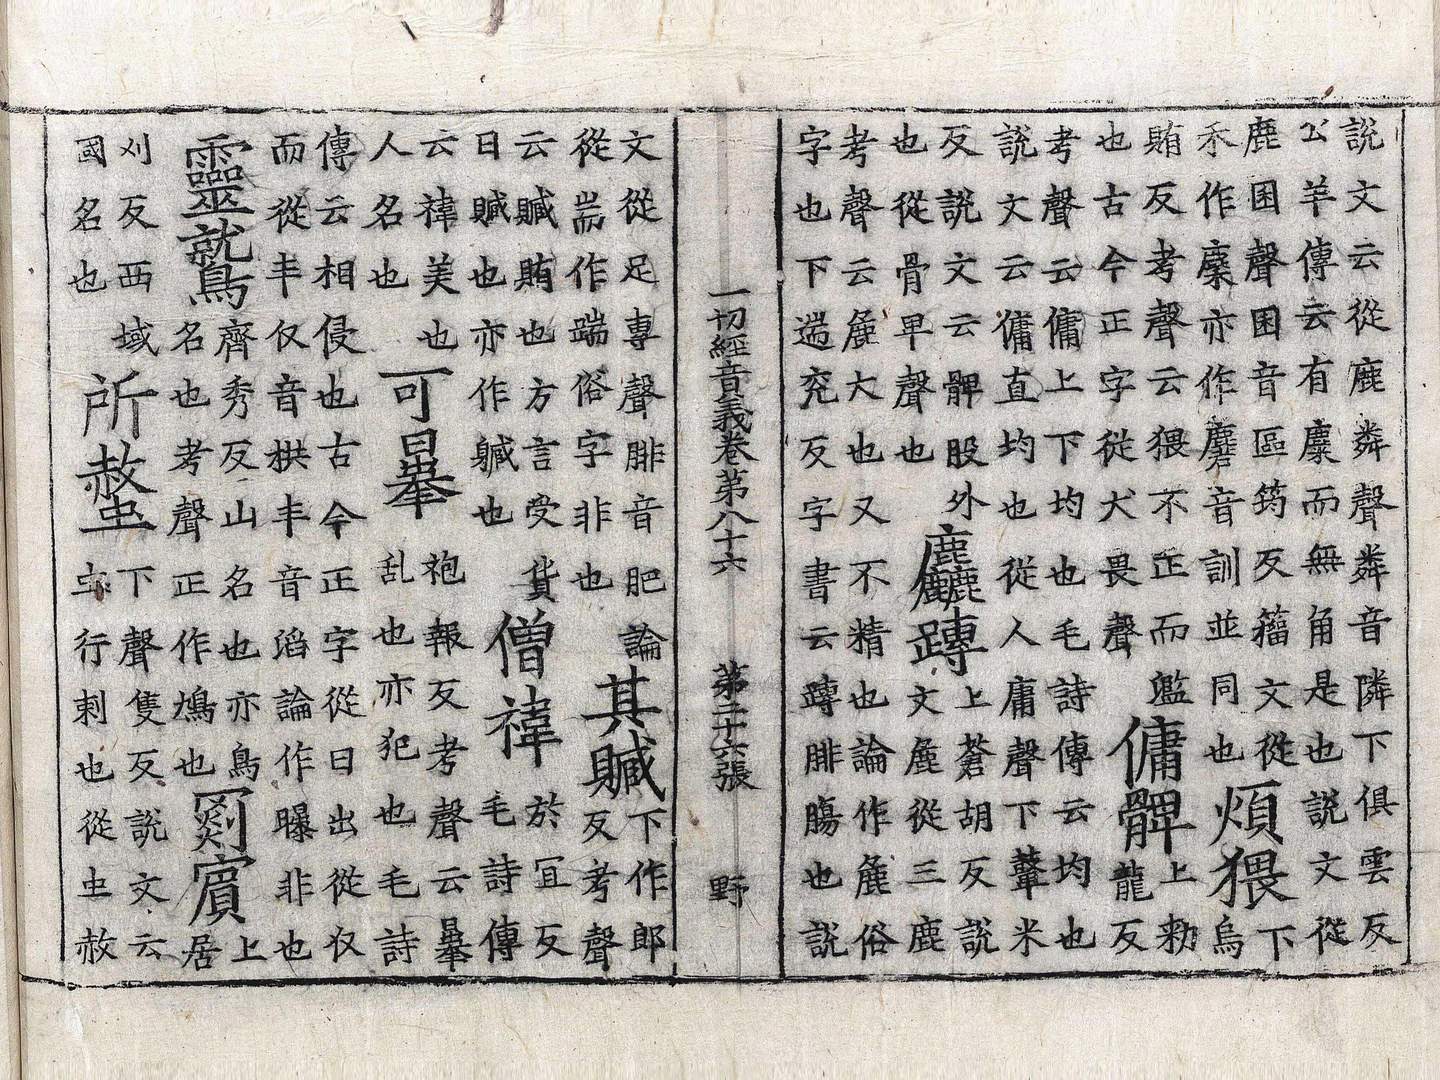 說文云從鹿粦聲粦音隣下俱雲反
公羊傳云有麇而無角是也說文從
鹿囷聲囷音區筠反籀文從 煩猥下
禾作麇亦作麏音訓並同也 烏
賄反考聲云猥不正而尶 傭髀上勑
也古今正字從犬畏聲 龍反
考聲云傭上下均也毛詩傳云均也
說文云傭直均也從人庸聲下鞞米
反說文云髀股外 麤踳上蒼胡反說
也從骨卑聲也 文麁從三鹿
考聲云麁大也又不精也論作麁俗
字也下遄兖反字書云踳腓腸也說
一切經音義卷第八十六 第二十六張 野
文從足專聲腓音肥論 其贓下作郎
從耑作踹俗字非也 反考聲
云贓賄也方言受貨 僧禕於冝反
日贓也亦作贓也 毛詩傳
云禕美也 可㬥袍報反考聲云㬥
人名也 乱也亦犯也毛詩
傳云相侵也古今正字從日出從㚘
而從丰㚘音拱丰音滔論作曝非也
靈鷲齊秀反山名也亦鳥 罽賓上
名也考聲正作鴆也 居
刈反西域 所螫下聲隻反說文云
國名也 虫行刺也從虫赦